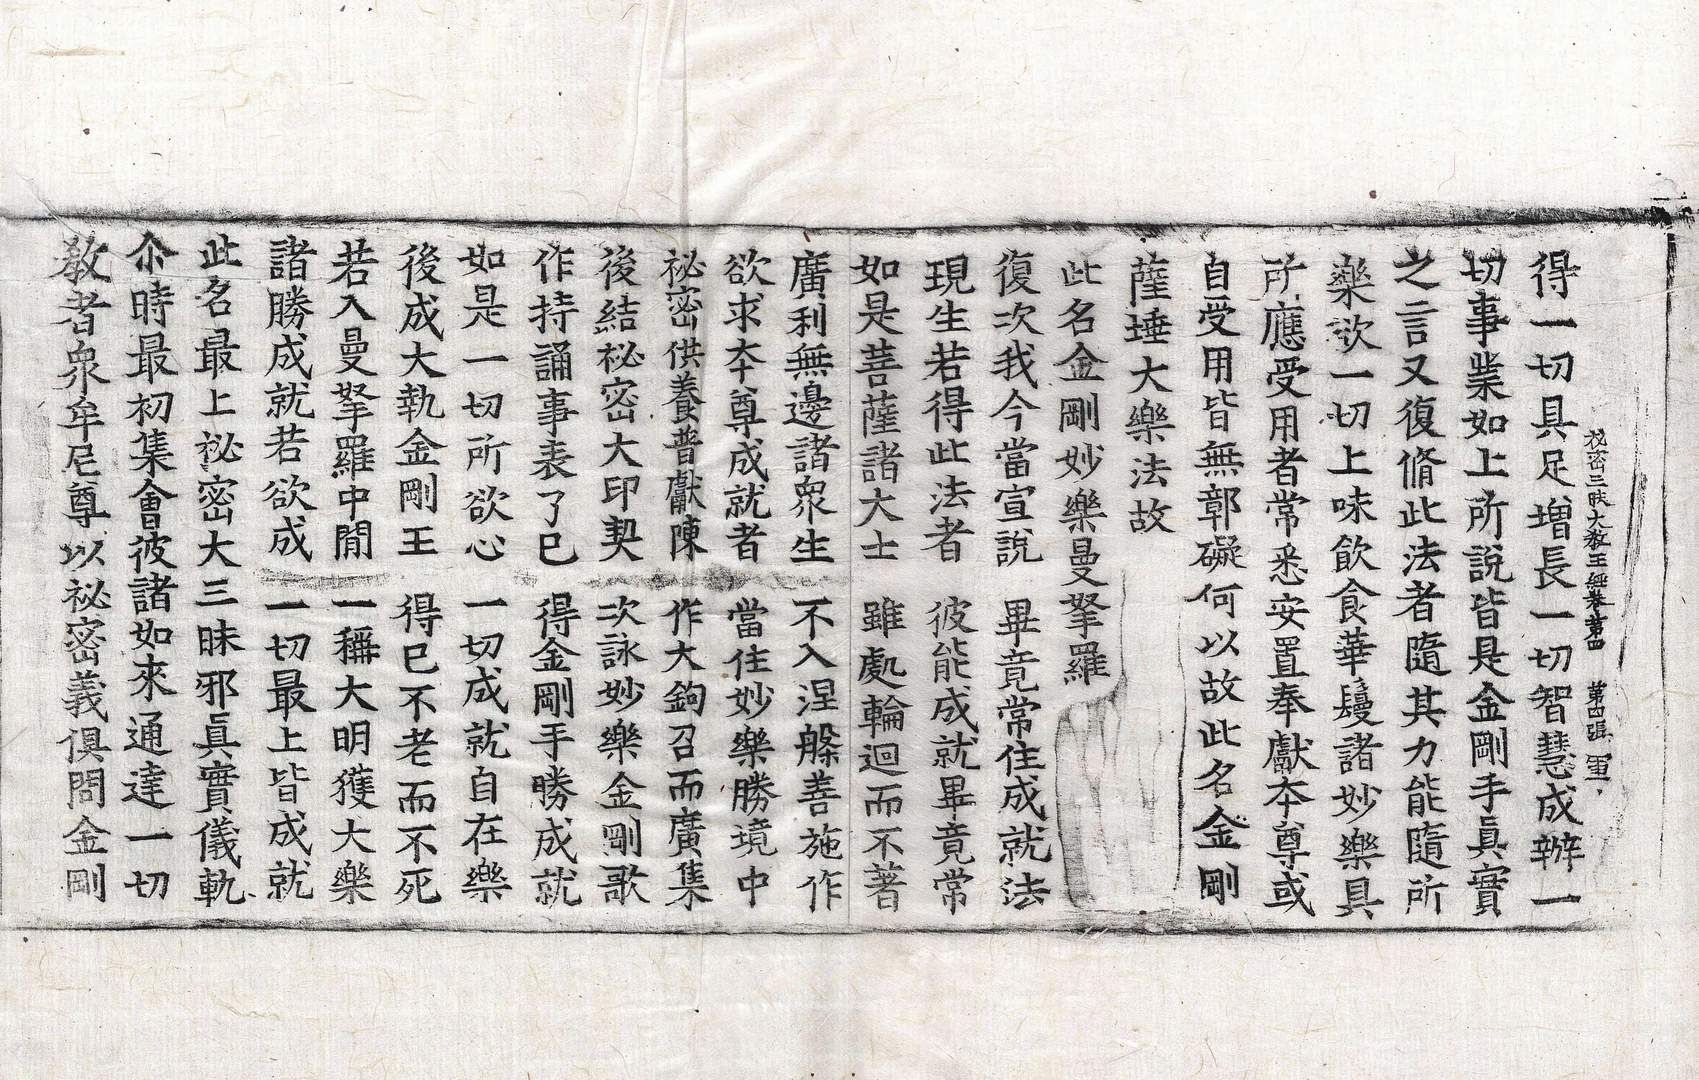 秘密三昧大教王經卷第四　第四張　軍
得一切具足增長一切智慧成辦一
切事業如上所說皆是金剛手眞實
之言又復脩此法者隨其力能隨所
樂欲一切上味飲食華鬘諸妙樂具
所應受用者常悉安置奉獻夲尊或
自受用皆無鄣礙何以故此名金剛
薩埵大樂法故
此名金剛妙樂曼拏羅
復次我今當宣說　畢竟常住成就法
現生若得此法者　彼能成就畢竟常
如是菩薩諸大士　雖處輪迴而不著
廣利無邊諸衆生　不入涅槃善施作
欲求夲尊成就者　當住妙樂勝境中
祕密供養普獻陳　作大鉤召而廣集
後結祕密大印契　次詠妙樂金剛歌
作持誦事表了已　得金剛手勝成就
如是一切所欲心　一切成就自在樂
後成大執金剛王　得已不老而不死
若入曼拏羅中閒　一稱大明獲大樂
諸勝成就若欲成　一切最上皆成就
此名最上祕密大三昧邪眞實儀軌
尒時最初集會彼諸如來通達一切
敎者衆牟尼尊以祕密義俱問金剛